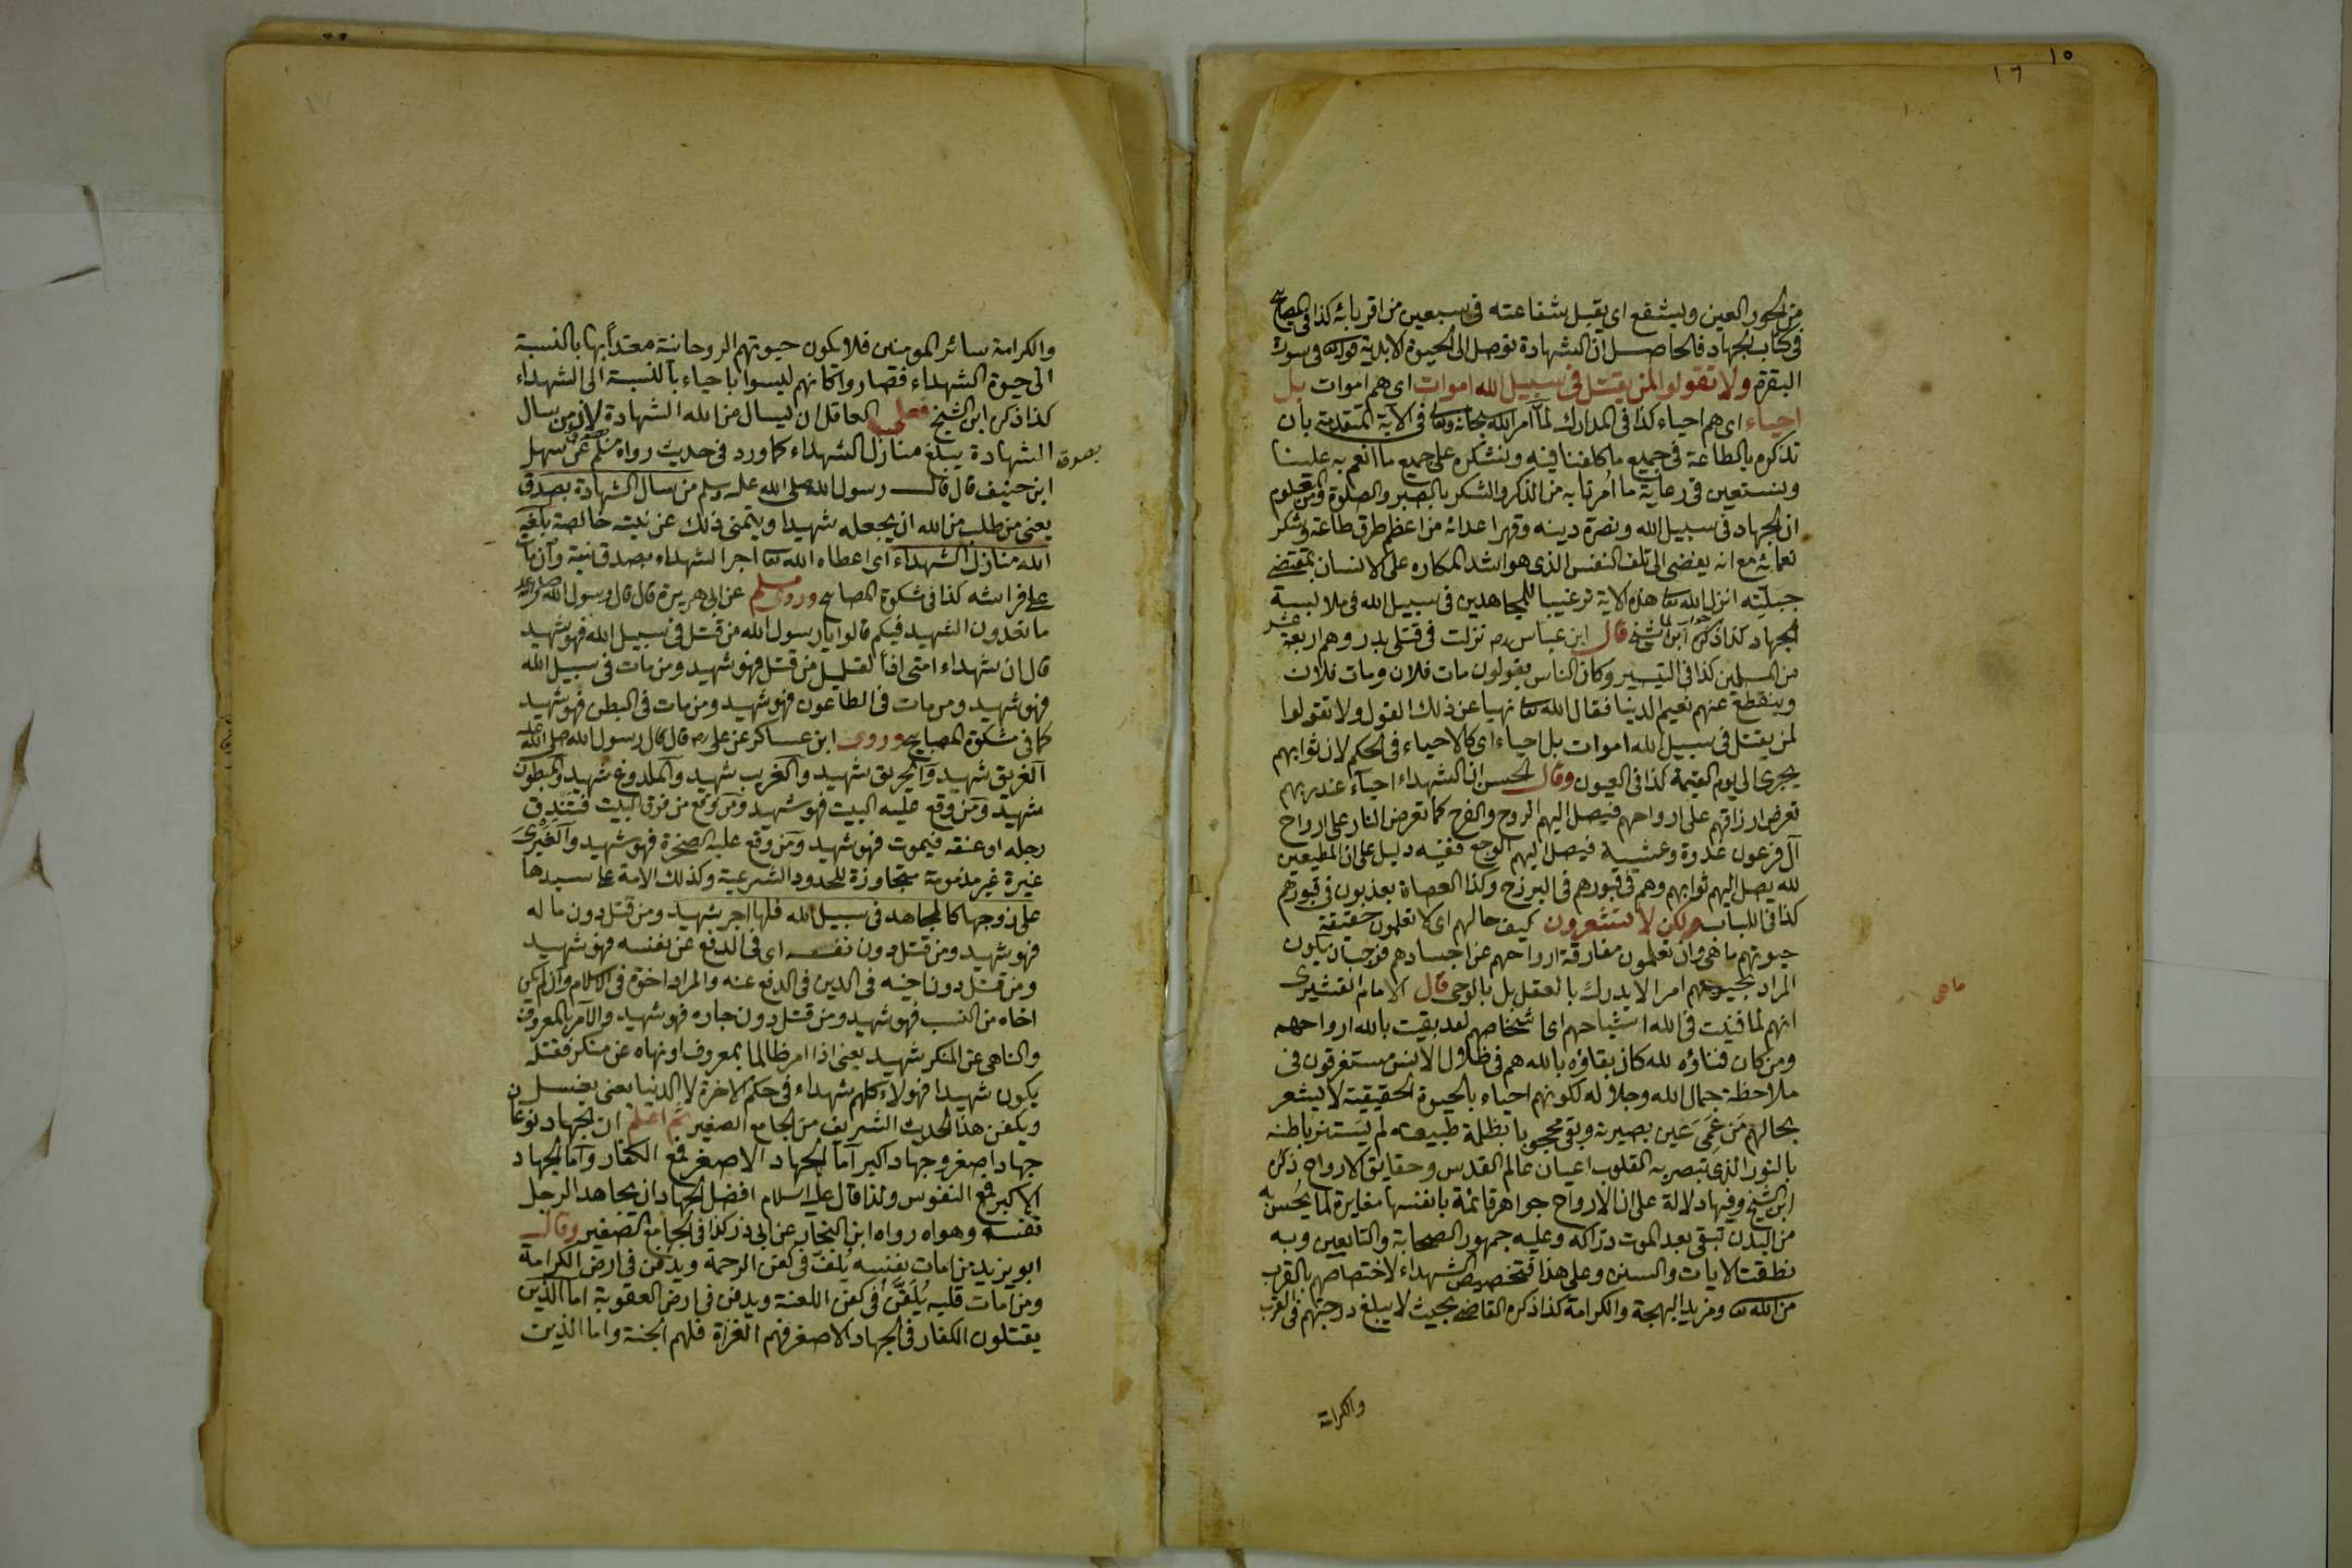 ١٥
١٦
من الحور العين ويشفع اى يقبل شفاعته فى سبعين من اقربائه كذا فى المصابيح
فى كتاب الجهاد فالحاصل ان الشهادة توصل الى الحيوة الابدية كقوله فى سورة
البقرة ولا تقولوا لمن يقتل فى سبيل الله اموات اى هم اموات بل
احياء اى هم احياء كذا فى المدارك لما امر الله سبحانه وتعا فى الآية المتقدمة بان
تذكره بالطاعة فى جميع ما كلفنا فيه ونشكره على جميع ما انعم به علينا
ونستعين فى رعاية ما امرنا به من الذكر والشكر بالصبر والصلوة ومن المعلوم
ان الجهاد فى سبيل الله ونصرة دينه وقهر اعدائه من اعظم طرق طاعة وشكر
نعمائه مع انه يفضى الى تلف النفس الذى هو اشد المكاره على الانسان بمقتضى
جبلّته انزل الله تعا هذه الاية ترغيبا للمجاهدين فى سبيل الله فى ملابسة
الجهاد كذا ذكره ابن الشيخ قال ابن عباس رم نزلت فى قتلى بدر وهم اربعة عشر
من المسلمين كذا فى التيسير وكان الناس يقولون مات فلان ومات فلان
وينقطع عنهم نعيم الدنيا فقال الله تعا نهيا عن ذلك القول ولا تقولوا
لمن يقتل فى سبيل الله اموات بل احياء اى كالاحياء فى الحكم لان ثوابهم
يجرى الى يوم القيمة كذا فى العيون وقال الحسن ان الشهداء احياء عند ربهم
تعرض ارزاقهم على ارواحهم فيصل اليهم الروح والفرح كما تعرض النار على ارواح
آل فرعون غدوة وعشية فيصل اليهم الوجع ففيه دليل على ان المطيعين
لله يصل اليهم ثوابهم وهم فى قبورهم فى البرزخ وكذا العصاة يعذبون فى قبورهم
كذا فى اللباب ولكن لا تشعرون كيف حالهم اى لا تعلمون حقيقة
حيوتهم ما هى وان تعلمون مفارقة ارواحهم عن اجسادهم فوجب ان يكون
المراد بحيوتهم امرا لا يدرك بالعقل بل بالوحى قال الامام القشيرى
ماهى
انهم لما فنيت فى الله اشباحهم اى اشخاصهم لقد بقيت بالله ارواحهم
ومن كان فناؤه لله كان بقاؤه بالله هم فى ظلال الانس مستغرقون فى
ملاحظة جمال الله وجلاله لكونهم احياء بالحيوة الحقيقية لا يشعر
بحالهم من عمى عين بصيرته وبقى محجوبا بظلمة طبيعته لم يستنر باطنه
بالنور الذى تبصر به القلوب اعيان عالم القدس وحقايق الارواح ذكره
ابن الشيخ وفيها دلالة على ان الارواح جواهر قائمة بانفسها مغايرة لما يحس به
من البدن تبقى بعد الموت دراكة وعليه جمهور الصحابة والتابعين وبه
نطقت الايات والسنن وعلى هذا فتخصيص الشهداء لاختصاصهم بالقرب
من الله تعا ومزيد البهجة والكرامة كذا ذكره القاضى بحيث لا يبلغ درجتهم فى القرب
والكرامة
والكرامة سائر المومنين فلا يكون حيوتهم الروحانية معتدا بها بالنسبة
الى حيوة الشهداء فصاروا كانهم ليسوا باحياء بالنسبة الى الشهداء
كذا ذكره ابن الشيخ فعلى العاقل ان يسال من الله الشهادة لان من سال
الشهادة يبلغ منازل الشهداء كما ورد فى حديث رواه مسلم عن سهل
بصدق
ابن حنيف قال قال رسول الله صلى الله عليه وسلم من سال الشهادة بصدق
يعنى من طلب من الله ان يجعله شهيدا ويتمنى ذلك عن نيته خالصة بلّغه
الله منازل الشهداء اى اعطاه الله تعا اجر الشهداء بصدق نيته وان مات
على فراشه كذا فى مشكوة المصابيح وروى مسلم عن ابى هريرة قال قال رسول الله صلى الله عليه
ما تعدون الشهيد فيكم قالوا يا رسول الله من قتل فى سبيل الله فهو شهيد
قال ان شهداء امتى اذا لقليل من قتل فهو شهيد ومن مات فى سبيل الله
فهو شهيد ومن مات فى الطاعون فهو شهيد ومن مات فى البطن فهو شهيد
كما فى مشكوة المصابيح وروى ابن عساكر عن على رم قال قال رسول الله صلى الله عليه
الغريق شهيد والحريق شهيد والغريب شهيد والملدوغ شهيد والمبطون
شهيد ومن وقع عليه البيت فهو شهيد ومن وقع من فوق البيت فتندق
رجله او عنقه فيموت فهو شهيد ومن وقع عليه الصخرة فهو شهيد والغيرى
غيرة غير مذمومة متجاوزة للحدود الشرعية وكذلك الامة على سيدها
على زوجها كالمجاهد فى سبيل الله فلها اجر شهيد ومن قتل دون ماله
فهو شهيد ومن قتل دون نفسه اى فى الدفع عن نفسه فهو شهيد
ومن قتل دون اخيه فى الدين فى الدفع عنه والمراد اخوة فى الاسلام وان لم يكن
اخاه من النسب فهو شهيد ومن قتل دون جاره فهو شهيد والآمر بالمعروف
والناهى عن المنكر شهيد يعنى اذا امر ظالما بمعروف او نهاه عن منكر فقتله
يكون شهيدا فهولاء كلهم شهداء فى حكم الاخرة لا الدنيا يعنى يغسلون
ويكفن هذا الحديث الشريف من الجامع الصغير ثم اعلم ان الجهاد نوعان
جهاد اصغر وجهاد اكبر اما الجهاد الاصغر قمع الكفار واما الجهاد
الاكبر قمع النفوس ولذا قال عليه السلام افضل الجهاد ان يجاهد الرجل
نفسه وهواه رواه ابن النجار عن ابى ذر كذا فى الجامع الصغير وقال
ابو يزيد من امات نفسه يلف فى كفن الرحمة ويدفن فى ارض الكرامة
ومن امات قلبه يلف فى كفن اللعنة ويدفن فى ارض العقوبة اما الذين
يقتلون الكفار فى الجهاد الاصغر فهم الغزاة فلهم الجنة واما الذين